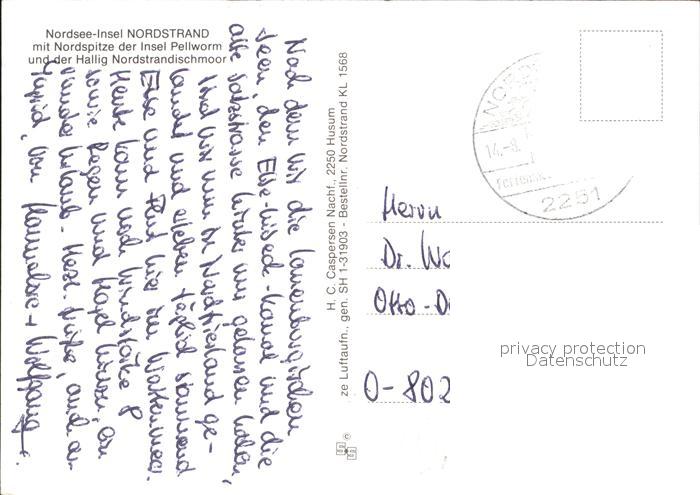 Nordsee-Insel NORDSTRAND
mit Nordspitze der Insel Pellworm
und der Hallig Nordstrandischmoor
Nach dem wir die Lauenburgischen
Seen, den Elbe-Lübeck-Kanal und die
alte Salzstrasse hinter uns gelassen haben,
sind wir nun in Nordfriesland ge-
landet und erleben täglich staunend
Ebbe und Flut hier im Wattenmeer.
Heute kam noch Windstärke 8
sowie Regen und Hagel hinzu, ein
runder Urlaub. Herzl. Grüße, auch an
von Hannelore + Wolfgang
H. C. Caspersen Nachf., 2250 Husum
ze Luftaufn., gen. SH 1-31903 - Bestellnr. Nordstrand KL 1568
14.-9.
2251
Herrn
Dr. Wo
Otto-D
O-802
privacy protection
Datenschutz
©